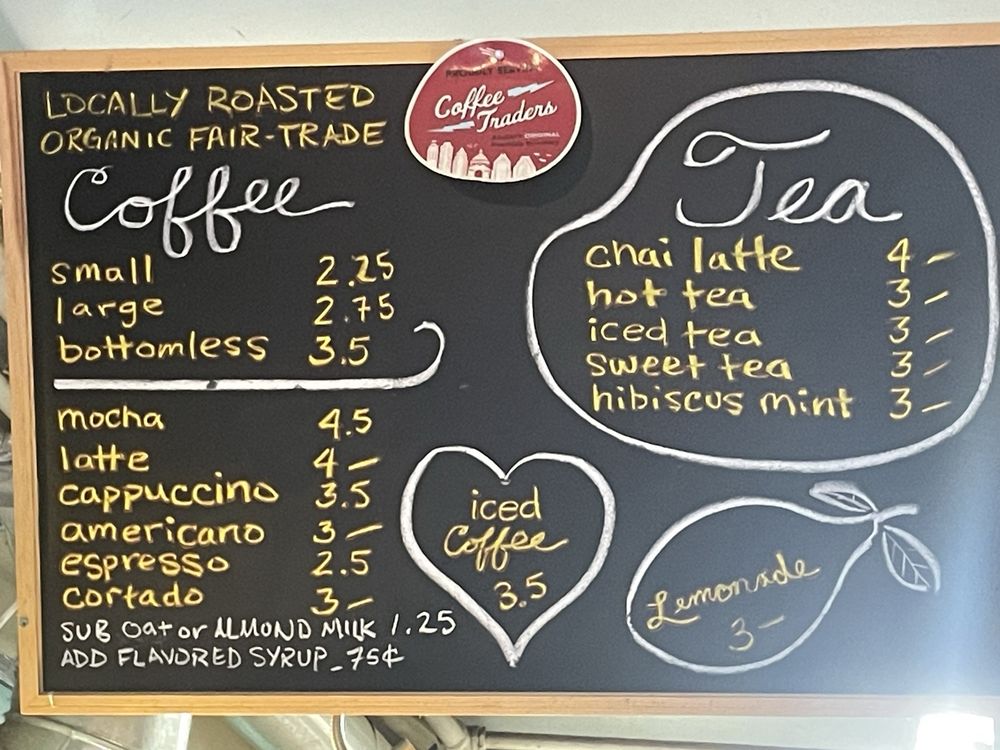 LOCALLY ROASTED
ORGANIC FAIR-TRADE
Coffee
small 2.25
large 2.75
bottomless 3.5
mocha 4.5
latte 4-
cappuccino 3.5
americano 3-
espresso 2.5
cortado 3-
SUB Oat or ALMOND MILK 1.25
ADD FLAVORED SYRUP_75¢
PROUDLY SERVING
Coffee
Traders
ORIGINAL
iced
Coffee
3.5
Tea
chai latte 4-
hot tea 3-
iced tea 3-
sweet tea 3-
hibiscus mint 3-
Lemonade
3-